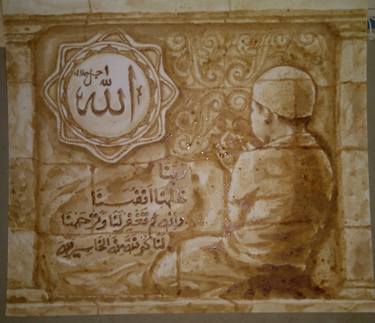 الله جل جلاله
ربنا
ظلمنا انفسنا
وان لم تغفر لنا وترحمنا
لنكونن من الخاسرين